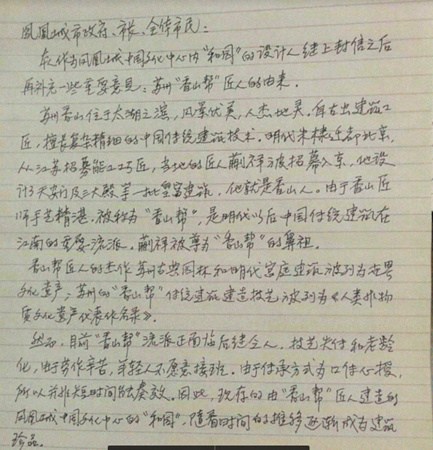 凤凰城市政府、市长、全体市民：
我作为凤凰城中国文化中心内"和园"的设计人继上封信之后
再补充一些重要意见：苏州"香山帮"匠人的由来。
苏州香山位于太湖之滨，风景优美，人杰地灵，自古出建筑工
匠，擅长复杂精细的中国传统建筑技术。明代朱棣迁都北京，
从江苏招募能工巧匠，当地的匠人蒯祥被招募入京，他设
计天安门及三大殿等一批皇宫建筑，他就是香山人。由于香山匠
师手艺精湛，被称为"香山帮"，是明代以后中国传统建筑在
江南的重要流派。蒯祥被尊为"香山帮"的鼻祖。
香山帮匠人的杰作苏州古典园林和明代宫庭建筑被列为世界
文化遗产；苏州的"香山帮"传统建筑建造技艺被列为《人类非物
质文化遗产代表作名录》
然而，目前"香山帮"流派正面临后继乏人、技艺失传和老龄
化，由于劳作辛苦，年轻人不愿意接班。由于传承方式为口传心授，
所以并非短时间能奏效。因此，现存的由"香山帮"匠人建造的
凤凰城中国文化中心的"和园"，随着时间的推移逐渐成为建筑
珍品。